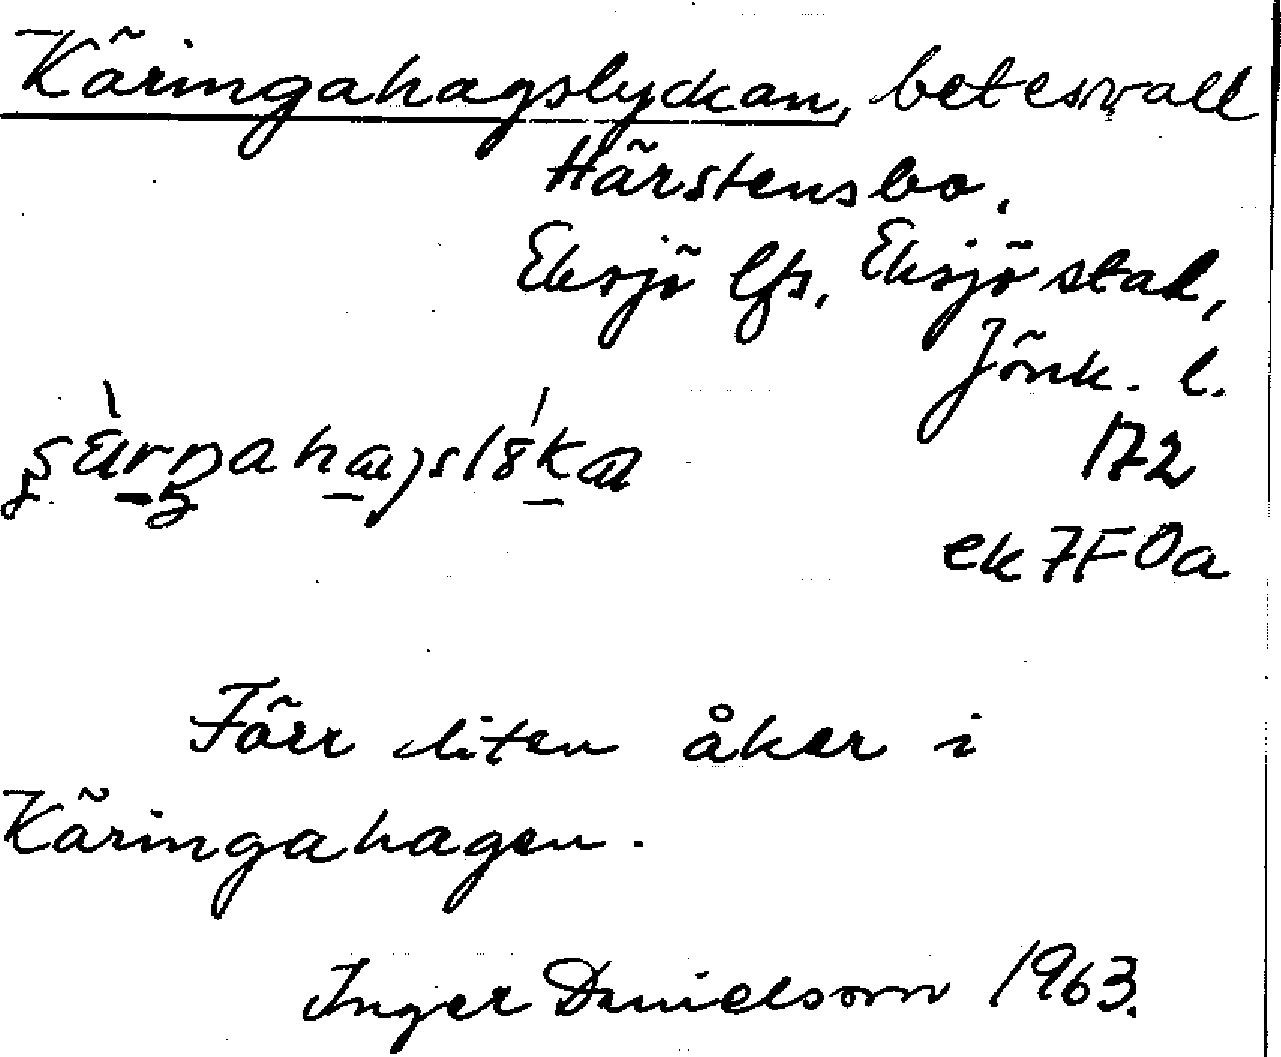 Käringahagslyckan, betesvall
Härstensbo.
Eksjö lfs, Eksjö stad,
Jönk. l.
172
ek 7F0a
Förr liten åker i
Käringahagen.
Inger Danielsson 1963.